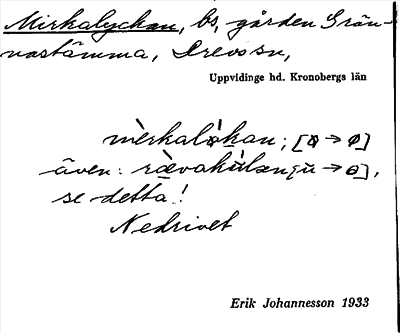 Mirkalyckan, bs, gården Grän-
nastämma, Drevs sn,
Uppvidinge hd. Kronobergs län
mèrkalỳkan; [ø → ø]
även: rævakùlan [ü → ɵ],
se detta!
Nedrivet
Erik Johannesson 1933